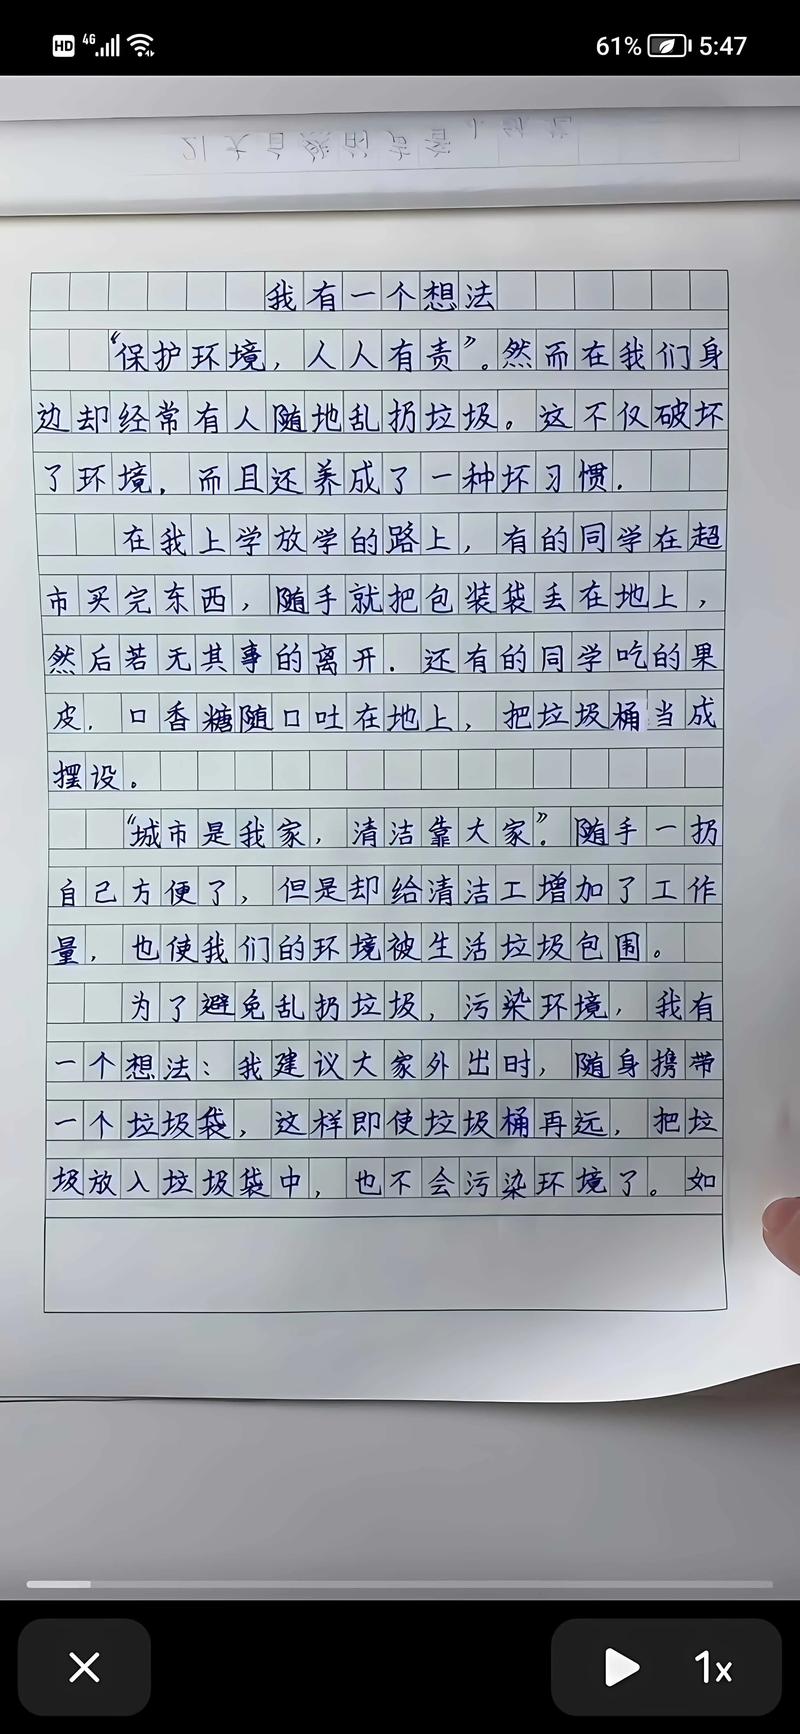 HD 4G 61% 5:47
21大自然的声音
我有一个想法
“保护环境，人人有责”。然而在我们身
边却经常有人随地乱扔垃圾。这不仅破坏
了环境，而且还养成了一种坏习惯．
在我上学放学的路上，有的同学在超
市买完东西，随手就把包装袋丢在地上，
然后若无其事的离开．还有的同学吃的果
皮．口香糖随口吐在地上，把垃圾桶当成
摆设。
“城市是我家，清洁靠大家”．随手一扔
自己方便了，但是却给清洁工增加了工作
量，也使我们的环境被生活垃圾包围。
为了避免乱扔垃圾，污染环境，我有
一个想法：我建议大家外出时，随身携带
一个垃圾袋，这样即使垃圾桶再远，把垃
圾放入垃圾袋中，也不会污染环境了。如
1x